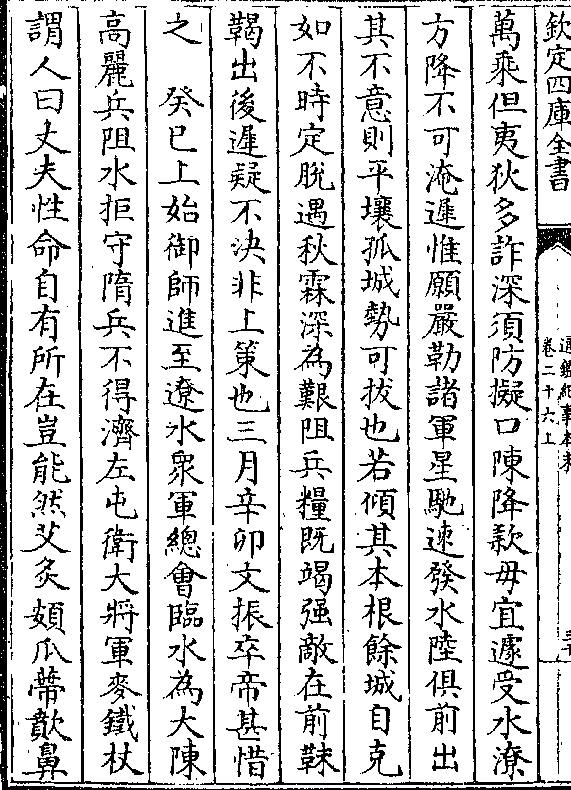 欽定四庫全書
通鑑紀事本末
卷二十六上
萬乘但夷狄多詐深須防擬口陳降款毋宜遽受水潦
方降不可淹遲惟願嚴勒諸軍星馳速發水陸俱前出
其不意則平壤孤城勢可拔也若傾其本根餘城自克
如不時定脫遇秋霖深為艱阻兵糧既竭强敵在前靺
鞨出後遲疑不決非上策也三月辛卯文振卒帝甚惜
之　癸巳上始御師進至遼水衆軍總會臨水為大陳
高麗兵阻水拒守隋兵不得濟左屯衛大將軍麥鐵杖
謂人曰丈夫性命自有所在豈能然艾灸頞瓜蔕歕鼻